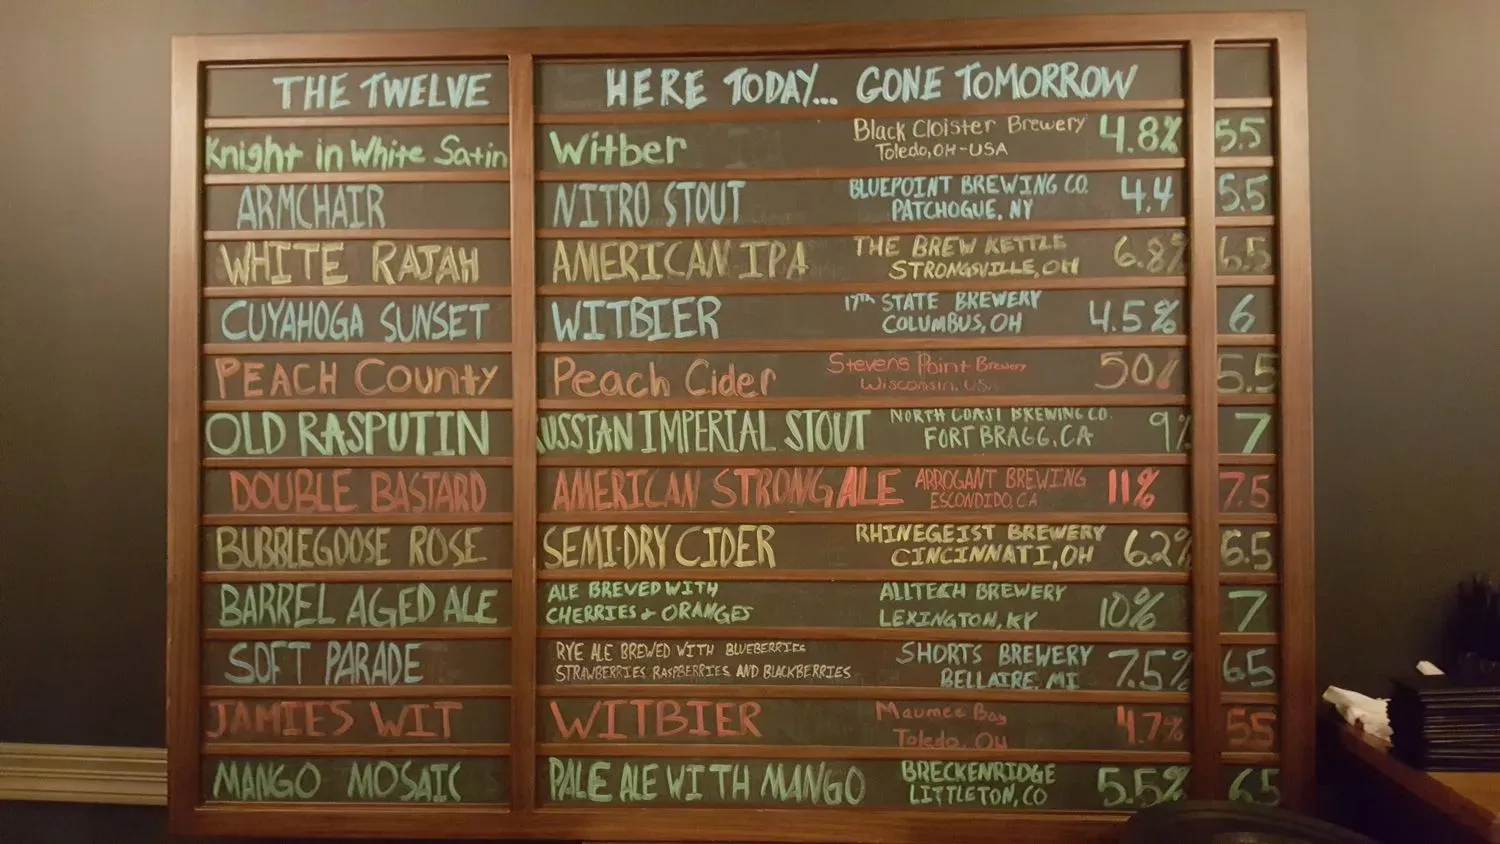 THE TWELVE HERE TODAY... GONE TOMORROW
Knight in White Satin Witber Black Cloister Brewery 4.8% 5.5
Toledo, OH-USA
ARMCHAIR NITRO STOUT BLUEPOINT BREWING CO. 4.4 5.5
PATCHOGUE, NY
WHITE RAJAH AMERICAN IPA THE BREW KETTLE 6.8% 6.5
STRONGSVILLE, OH
CUYAHOGA SUNSET WITBIER 17th STATE BREWERY 4.5% 6
COLUMBUS, OH
PEACH COUNTY Peach Cider Stevens Point Brewery 50% 5.5
Wisconsin, USA
OLD RASPUTIN RUSSIAN IMPERIAL STOUT NORTH COAST BREWING CO. 9% 7
FORT BRAGG, CA
DOUBLE BASTARD AMERICAN STRONG ALE ARROGANT BREWING 11% 7.5
ESCONDIDO, CA
BUBBLEGOOSE ROSE SEMI-DRY CIDER RHINEGEIST BREWERY 6.2% 6.5
CINCINNATI, OH
BARREL AGED ALE ALE BREVED WITH ALLTECH BREWERY 10% 7
CHERRIES & ORANGES LEXINGTON, KY
SOFT PARADE RYE ALE BREWED WITH BLUEBERRIES SHORTS BREWERY 7.5% 6.5
STRAWBERRIES RASPBERRIES AND BLACKBERRIES BELLAIRE, MI
JAMIES WIT WITBIER Maumee Bay 4.7% 55
Toledo, OH
MANGO MOSAIC PALE ALE WITH MANGO BRECKENRIDGE 5.5% 6.5
LITTLETON, CO